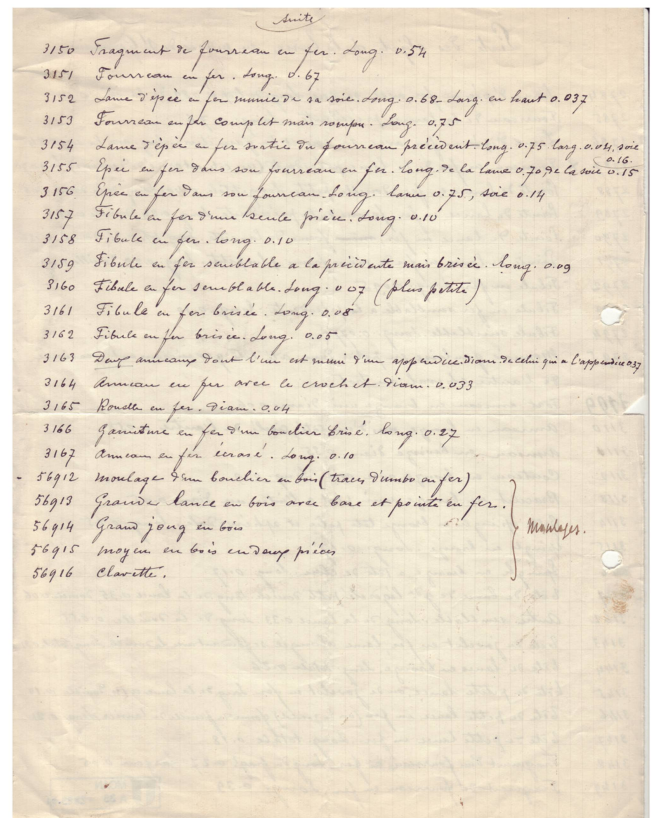 Suite
3150 Fragment de fourreau en fer. Long. 0.54
3151 Fourreau en fer. Long. 0.67
3152 Lame d'épée en fer munie de sa soie. Long. 0.68 - Larg. en haut 0.037
3153 Fourreau en fer complet mais rompu. Long. 0.75
3154 Lame d'épée en fer sortie du fourreau précédent. long. 0.75 larg. 0.04, soie 0.16.
3155 Epée en fer dans son fourreau en fer. long. de la lame 0.70 de la soie 0.15
3156 Epée en fer dans son fourreau. Long. lame 0.75, soie 0.14
3157 Fibule en fer d'une seule pièce. Long. 0.10
3158 Fibule en fer. long. 0.10
3159 Fibule en fer semblable a la précédente mais brisée. long. 0.09
3160 Fibule en fer semblable. Long. 0 07 (plus petite)
3161 Fibule en fer brisée. Long. 0.08
3162 Fibule en fer brisée. Long. 0.05
3163 Deux anneaux dont l'un est muni d'un appendice. diam. de celui qui a l'appendice 037
3164 Anneau en fer avec le crochet diam. 0.033
3165 Rouelle en fer. Diam. 0.04
3166 Garniture en fer d'un bouclier brisé. long. 0.27
3167 Anneau en fer écrasé. Long. 0.10
- 56912 Moulage d'un bouclier en bois (traces d'umbo en fer)
56913 Grande lance en bois avec base et pointe en fer.
56914 Grand joug en bois
56915 moyeu en bois en deux pièces
56916 Clavette.
Moulages.